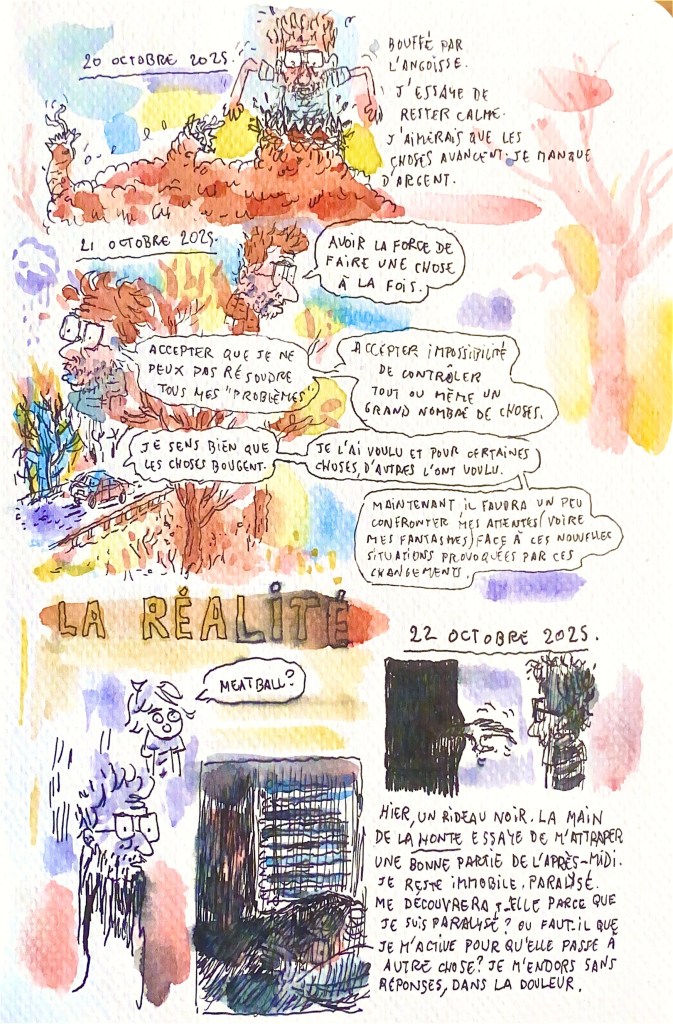 20 OCTOBRE 2025.
BOUFFÉ PAR
L'ANGOISSE.
J'ESSAYE DE
RESTER CALME.
J'AIMERAIS QUE LES
CHOSES AVANCENT. JE MANQUE
D'ARGENT.
21 OCTOBRE 2025.
AVOIR LA FORCE DE
FAIRE UNE CHOSE
À LA FOIS.
ACCEPTER QUE JE NE
PEUX PAS RÉSOUDRE
TOUS MES "PROBLÈMES"
ACCEPTER IMPOSSIBILITÉ
DE CONTRÔLER
TOUT OU MÊME UN
GRAND NOMBRE DE CHOSES.
JE SENS BIEN QUE
LES CHOSES BOUGENT.
JE L'AI VOULU ET POUR CERTAINES
CHOSES, D'AUTRES L'ONT VOULU.
MAINTENANT, IL FAUDRA UN PEU
CONFRONTER MES ATTENTES (VOIRE
MES FANTASMES) FACE À CES NOUVELLES
SITUATIONS PROVOQUÉES PAR CES
CHANGEMENTS.
LA RÉALITÉ
MEATBALL?
22 OCTOBRE 2025.
HIER, UN RIDEAU NOIR. LA MAIN
DE LA HONTE ESSAYE DE M'ATTRAPER
UNE BONNE PARTIE DE L'APRÈS-MIDI.
JE RESTE IMMOBILE, PARALYSÉ.
ME DÉCOUVRERA T-ELLE PARCE QUE
JE SUIS PARALYSÉ? OU FAUT-IL QUE
JE M'ACTIVE POUR QU'ELLE PASSE À
AUTRE CHOSE? JE M'ENDORS SANS
RÉPONSES, DANS LA DOULEUR.